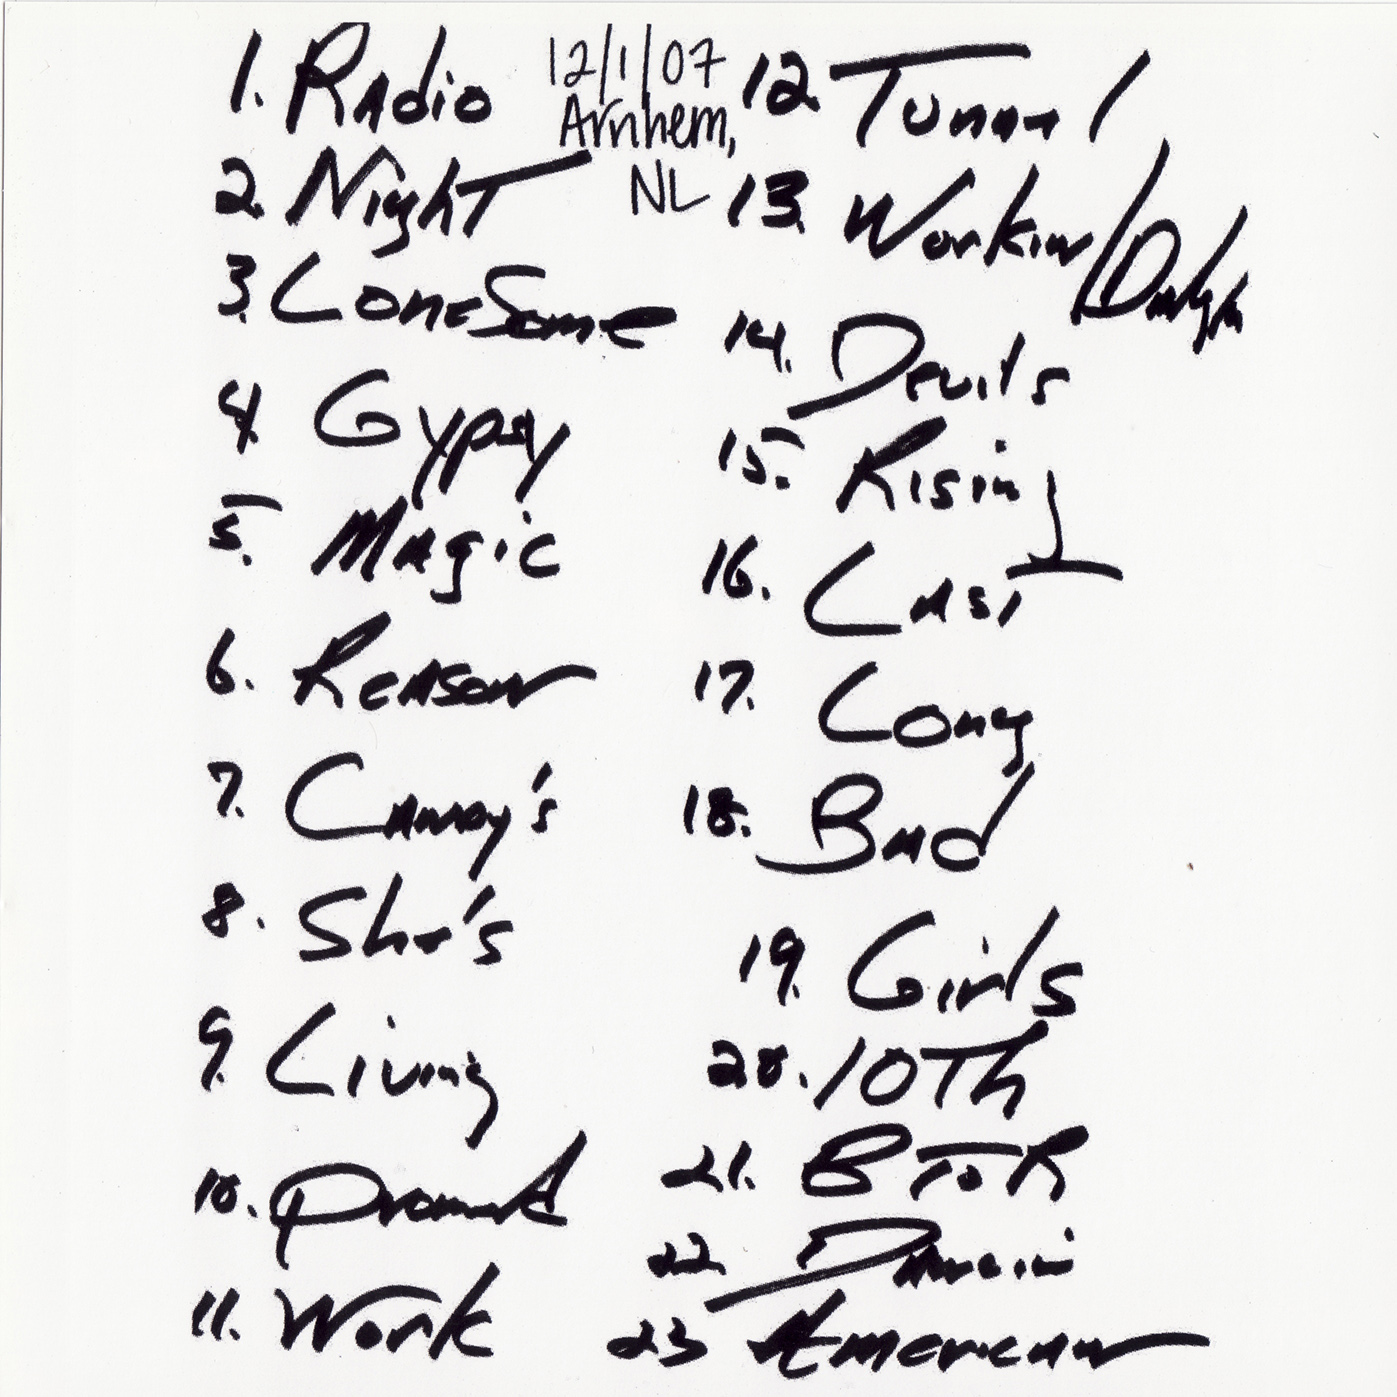 1. Radio
2. Night
3. Lonesome
4. Gypsy
5. Magic
6. Reason
7. Candy's
8. She's
9. Living
10. Promised
11. Work
12/1/07
Arnhem,
NL
12. Tunnel
13. Workin/
14. Devils
15. Rising
16. Last
17. Long
18. Bad
19. Girls
20. 10Th
21. BToR
22. Dancin
23 American